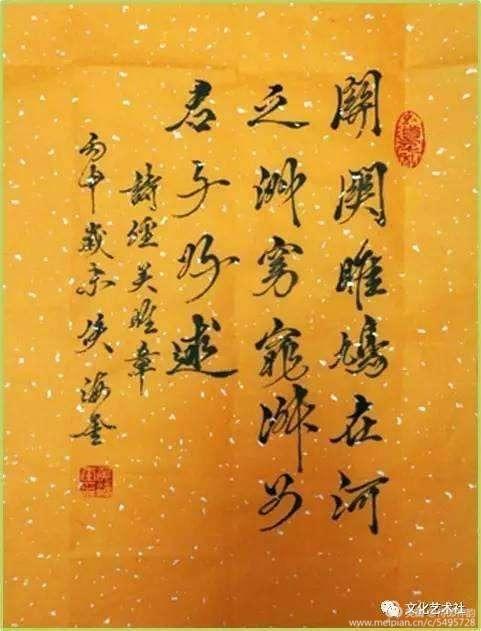 關関雎鳩在河
之洲窈窕淑女
君子好逑
詩經关雎章
丙申歲 海
文化艺术社
www.meipian.cn/c/5495728